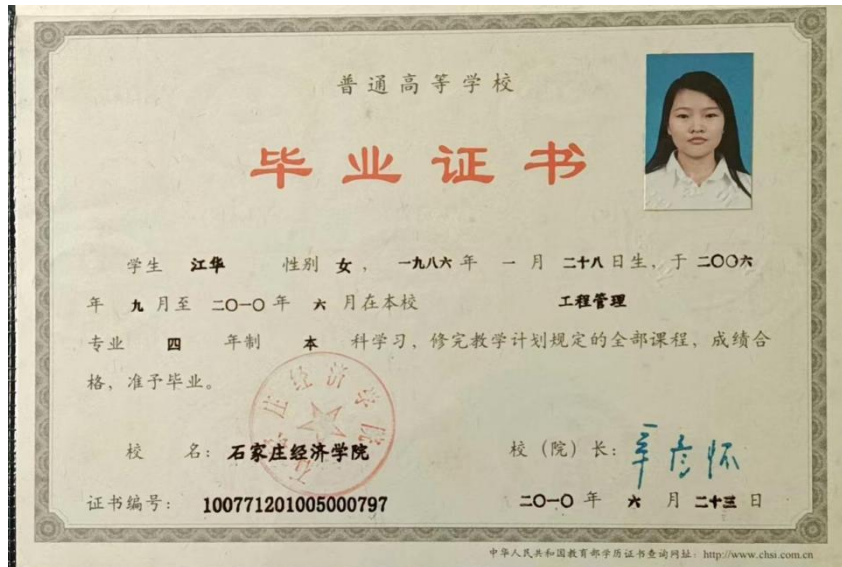 普通高等学校
毕业证书
学生 江华 性别 女, 一九八六 年 一 月 二十八 日生, 于 二〇〇六
年 九 月至 二〇一〇 年 六 月在本校 工程管理
专业 四 年制 本 科学习, 修完教学计划规定的全部课程, 成绩合
格, 准予毕业。
石家庄经济学院
校 名: 石家庄经济学院 校(院)长:
证书编号: 100771201005000797 二〇一〇 年 六 月 二十三 日
中华人民共和国教育部学历证书查询网址: http://www.chsi.com.cn